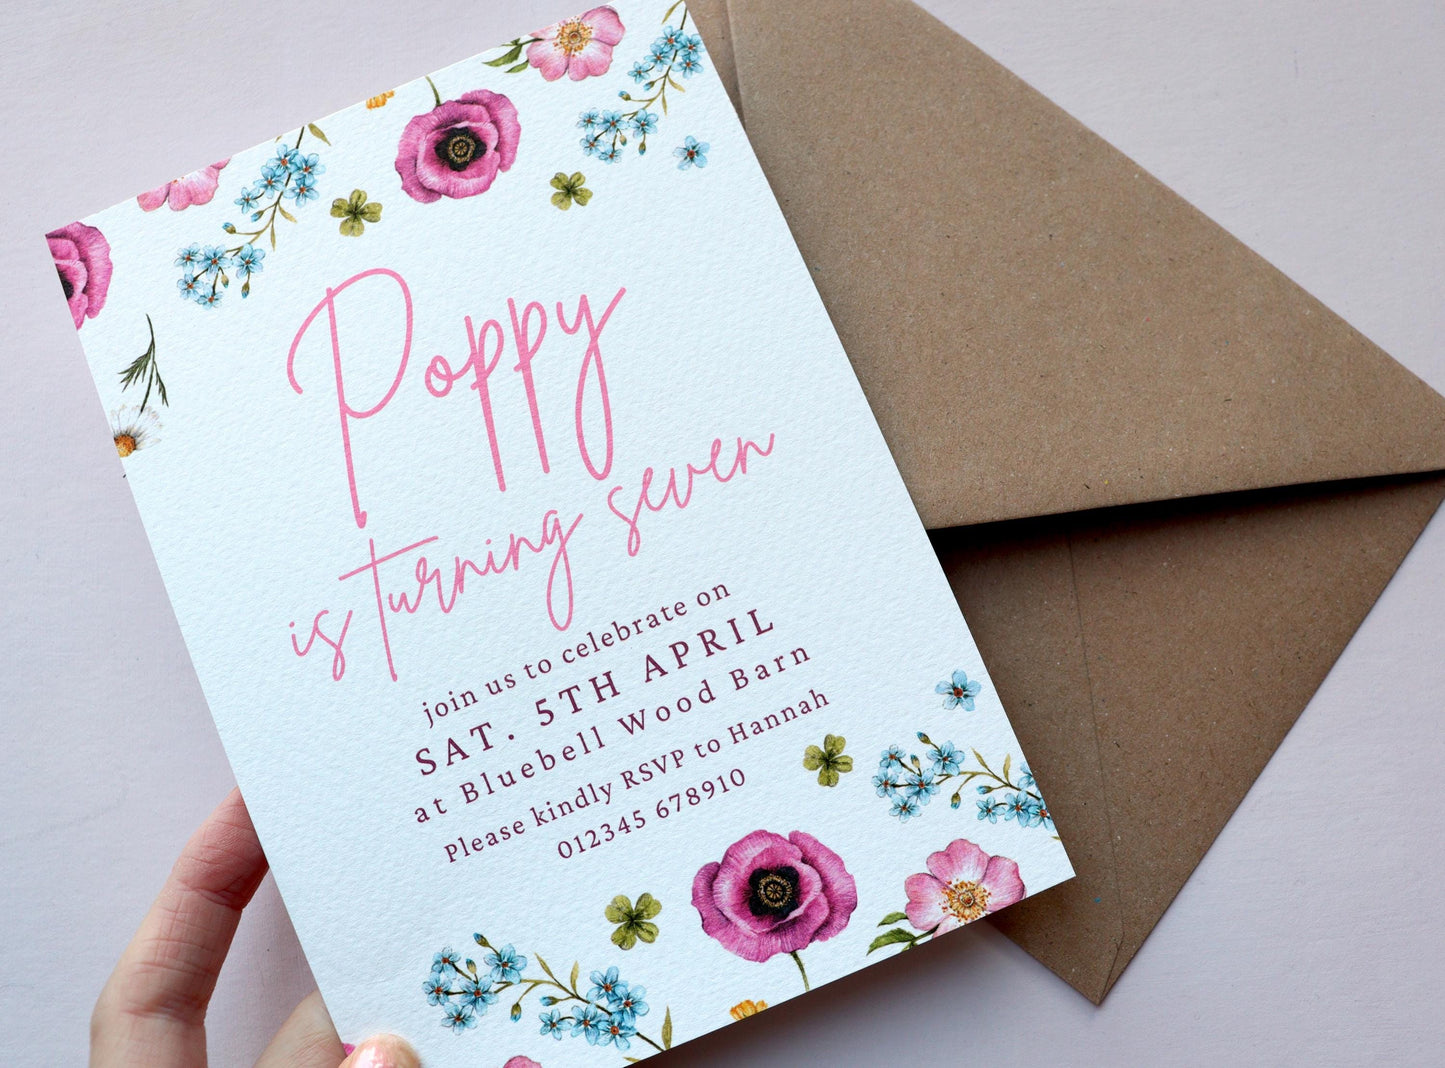 Poppy
is turning seven
join us to celebrate on
SAT. 5TH APRIL
at Bluebell Wood Barn
Please kindly RSVP to Hannah
012345 678910